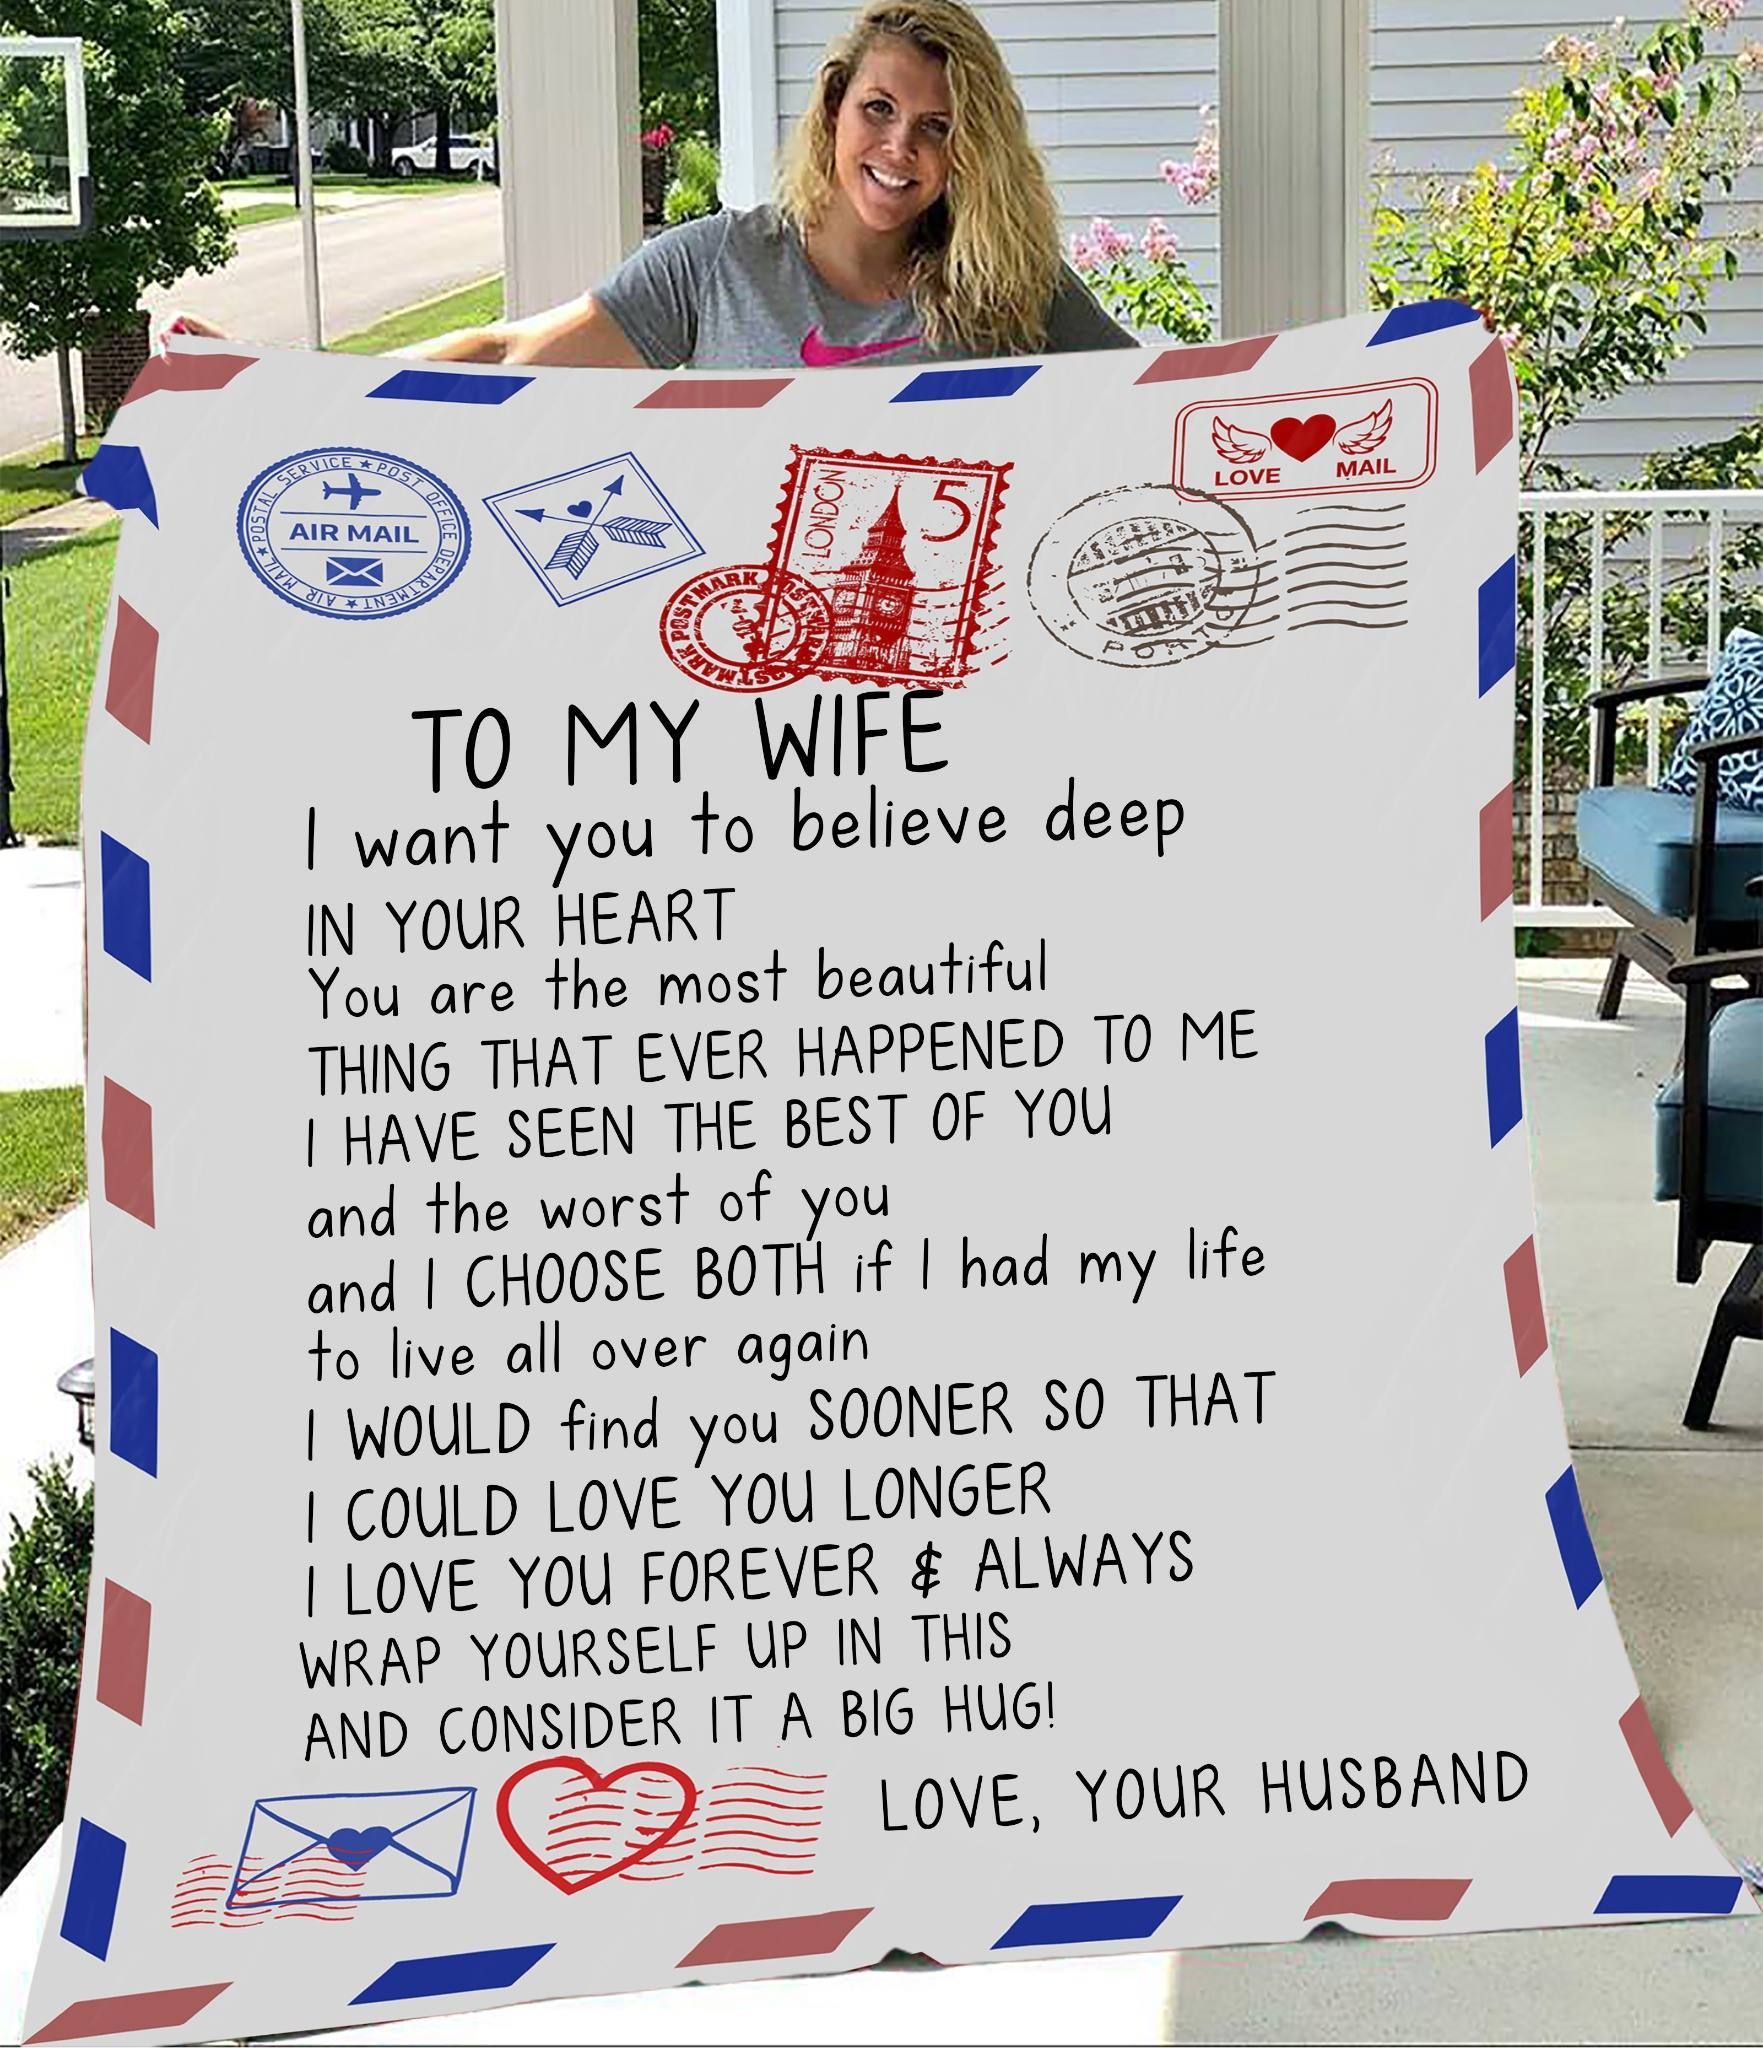 SPALDING
POSTAL SERVICE ★ POST OFFICE DEPARTMENT ★ AIR MAIL ★
AIR MAIL
LONDON
5
POSTMARK POSTMARK POSTMARK
LOVE MAIL
TO MY WIFE
I want you to believe deep
IN YOUR HEART
You are the most beautiful
THING THAT EVER HAPPENED TO ME
I HAVE SEEN THE BEST OF YOU
and the worst of you
and I CHOOSE BOTH if I had my life
to live all over again
I WOULD find you SOONER SO THAT
I COULD LOVE YOU LONGER
I LOVE YOU FOREVER & ALWAYS
WRAP YOURSELF UP IN THIS
AND CONSIDER IT A BIG HUG!
LOVE, YOUR HUSBAND